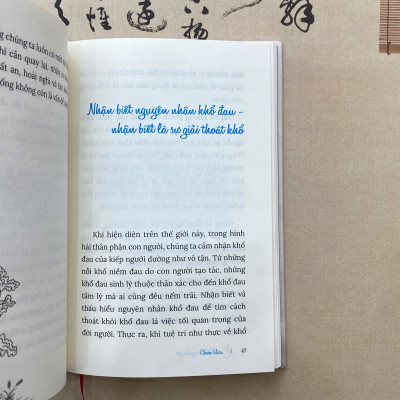 g chúng ta luôn có một
hi cần quay lại, nhấn
ất an, hoài nghi và
ống không còn là vấn
Nhận biết nguyên nhân khổ đau –
nhận biết là sự giải thoát khổ
Khi hiện diện trên thế giới này, trong hình
hài thân phận con người, chúng ta cảm nhận khổ
đau của kiếp người dường như vô tận. Từ những
nỗi khổ niềm đau do con người tạo tác, những
khổ đau sinh lý thuộc thân xác cho đến khổ đau
tâm lý mà ai cũng đều nếm trải. Nhận biết và
thấu hiểu nguyên nhân khổ đau để tìm cách
thoát khỏi khổ đau là việc tối quan trọng của
đời người. Thực ra, khi tuệ tri như thực về khổ
47